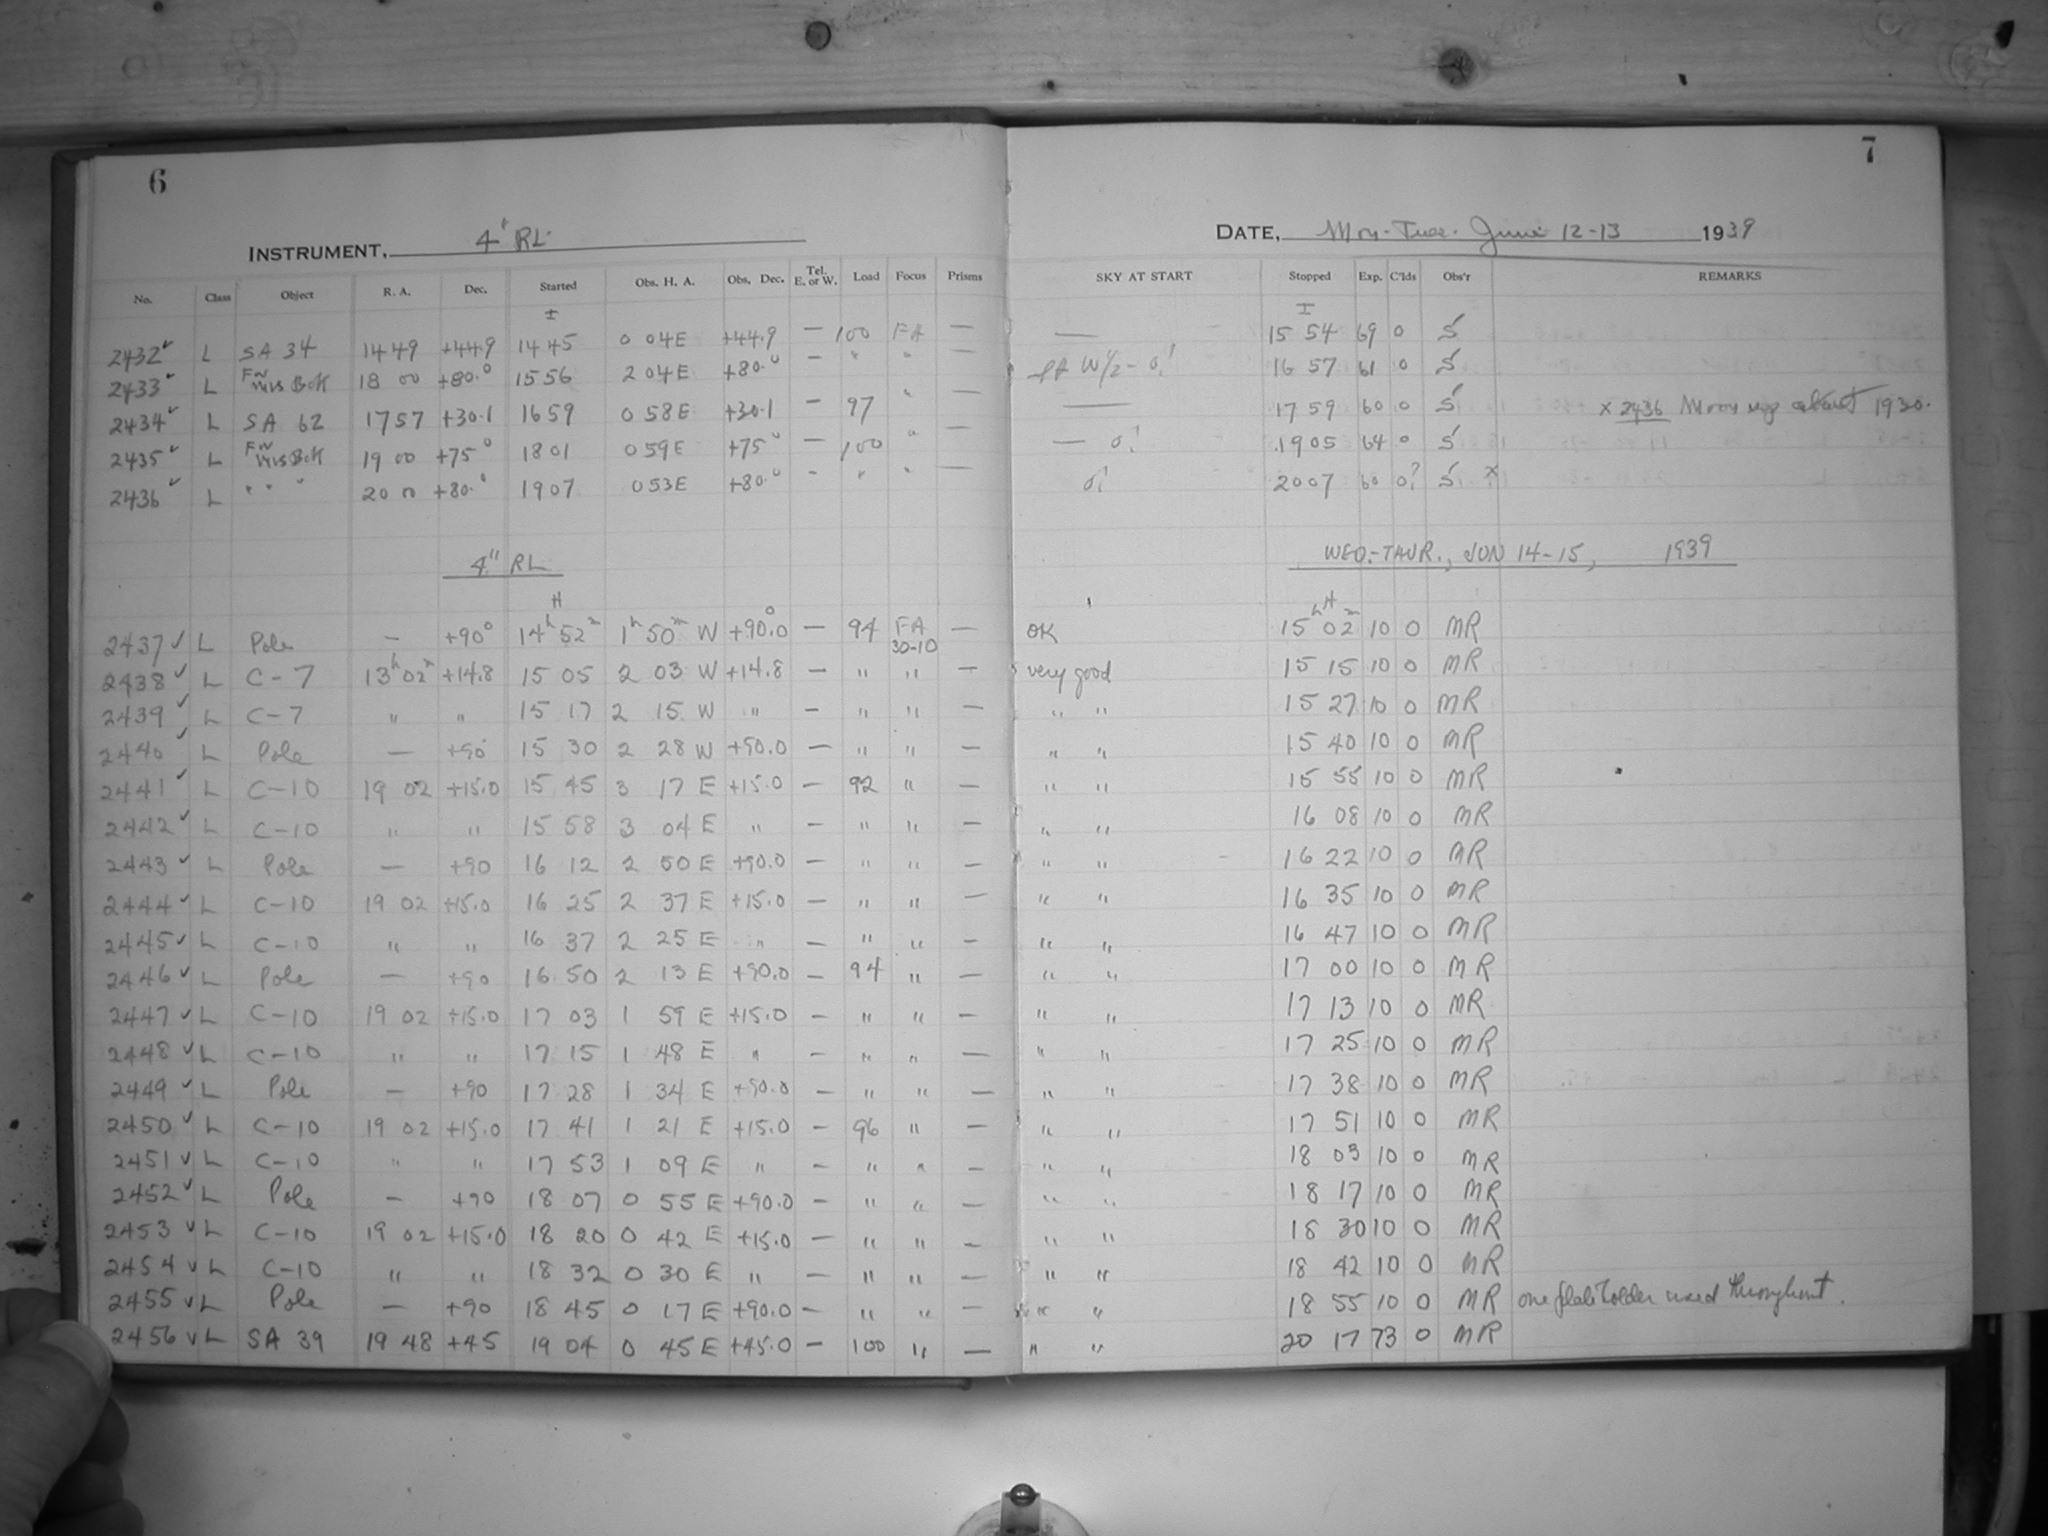 6
7
INSTRUMENT, 4" RL
DATE, Mon-Tues. June 12-13 1939
No. Class Object R. A. Dec. Started Obs. H. A. Obs. Dec. Tel. E. or W. Load Focus Prisms SKY AT START Stopped Exp. C'lds Obs'r REMARKS
2432 ✓ L SA 34 14 49 +44.9 14 45 0 04 E +44.9 — 100 FA — — 15 54 69 0 S
2433 ✓ L 18 00 +80.° 15 56 2 04 E +80.° — " " — 16 57 61 0 S
2434 ✓ L SA 62 17 57 +30.1 16 59 0 58 E +30.1 — 97 " — — 17 59 60 0 S x 2436 Moon up about 1930.
2435 ✓ L 19 00 +75° 18 01 0 59 E +75° — 100 " — — 19 05 64 0 S
2436 ✓ L " " " 20 00 +80.° 19 07 0 53 E +80.° — " " — 20 07 60 0? S x
4" RL
WED.-THUR., JUN 14-15, 1939
H
H
2437 ✓ L Pole — +90° 14h 52m 1h 50m W +90.0° — 94 FA 30-10 — OK 15h 02m 10 0 MR
2438 ✓ L C-7 13h 02m +14.8 15 05 2 03 W +14.8 — " " — very good 15 15 10 0 MR
2439 ✓ L C-7 " " 15 17 2 15 W " — " " — " " 15 27 10 0 MR
2440 ✓ L Pole — +90° 15 30 2 28 W +90.0 — " " — " " 15 40 10 0 MR
2441 ✓ L C-10 19 02 +15.0 15 45 3 17 E +15.0 — 92 " — " " 15 55 10 0 MR
2442 ✓ L C-10 " " 15 58 3 04 E " — " " — " " 16 08 10 0 MR
2443 ✓ L Pole — +90 16 12 2 50 E +90.0 — " " — " " 16 22 10 0 MR
2444 ✓ L C-10 19 02 +15.0 16 25 2 37 E +15.0 — " " — " " 16 35 10 0 MR
2445 ✓ L C-10 " " 16 37 2 25 E " — " " — " " 16 47 10 0 MR
2446 ✓ L Pole — +90 16 50 2 13 E +90.0 — 94 " — " " 17 00 10 0 MR
2447 ✓ L C-10 19 02 +15.0 17 03 1 59 E +15.0 — " " — " " 17 13 10 0 MR
2448 ✓ L C-10 " " 17 15 1 48 E " — " " — " " 17 25 10 0 MR
2449 ✓ L Pole — +90 17 28 1 34 E +90.0 — " " — " " 17 38 10 0 MR
2450 ✓ L C-10 19 02 +15.0 17 41 1 21 E +15.0 — 96 " — " " 17 51 10 0 MR
2451 ✓ L C-10 " " 17 53 1 09 E " — " " — " " 18 03 10 0 MR
2452 ✓ L Pole — +90 18 07 0 55 E +90.0 — " " — " " 18 17 10 0 MR
2453 ✓ L C-10 19 02 +15.0 18 20 0 42 E +15.0 — " " — " " 18 30 10 0 MR
2454 ✓ L C-10 " " 18 32 0 30 E " — " " — " " 18 42 10 0 MR
2455 ✓ L Pole — +90 18 45 0 17 E +90.0 — " " — " " 18 55 10 0 MR one plateholder used throughout.
2456 ✓ L SA 39 19 48 +45 19 04 0 45 E +45.0 — 100 " — " " 20 17 73 0 MR